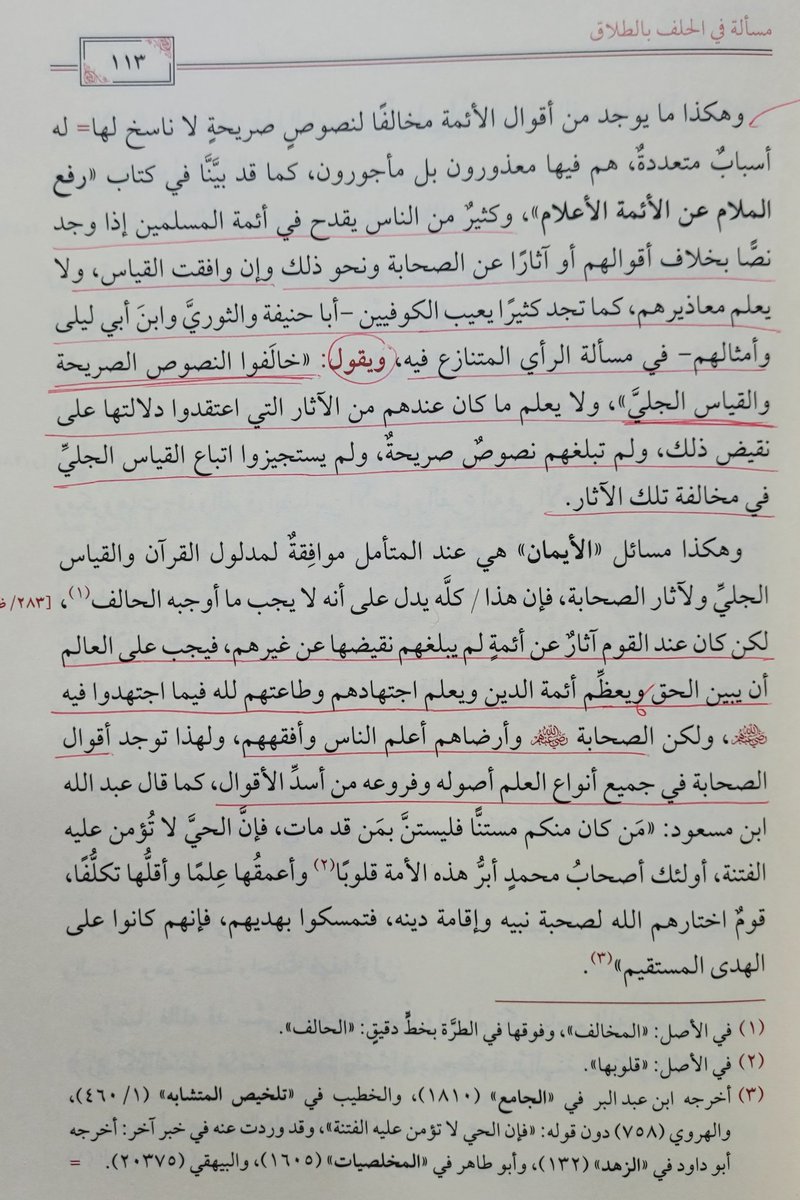 مسألة في الحلف بالطلاق
١١٣
وهكذا ما يوجد من أقوال الأئمة مخالفًا لنصوصٍ صريحةٍ لا ناسخ لها= له
أسبابٌ متعددةٌ، هم فيها معذورون بل مأجورون، كما قد بيَّنَّا في كتاب «رفع
الملام عن الأئمة الأعلام»، وكثيرٌ من الناس يقدح في أئمة المسلمين إذا وجد
نصًّا بخلاف أقوالهم أو آثارًا عن الصحابة ونحو ذلك وإن وافقت القياس، ولا
يعلم معاذيرهم، كما تجد كثيرًا يعيب الكوفيين –أبا حنيفة والثوريَّ وابنَ أبي ليلى
وأمثالهم– في مسألة الرأي المتنازع فيه، ويقول: «خالَفوا النصوص الصريحة
والقياس الجليَّ»، ولا يعلم ما كان عندهم من الآثار التي اعتقدوا دلالتها على
نقيض ذلك، ولم تبلغهم نصوصٌ صريحةٌ، ولم يستجيزوا اتباع القياس الجليِّ
في مخالفة تلك الآثار.
وهكذا مسائل «الأيمان» هي عند المتأمل موافِقةٌ لمدلول القرآن والقياس
الجليِّ ولآثار الصحابة، فإن هذا / كلَّه يدل على أنه لا يجب ما أوجبه الحالف(١)، [٢٨٣/
لكن كان عند القوم آثارٌ عن أئمةٍ لم يبلغهم نقيضها عن غيرهم، فيجب على العالم
أن يبين الحق ويعظِّم أئمة الدين ويعلم اجتهادهم وطاعتهم لله فيما اجتهدوا فيه
﵃، ولكن الصحابة ﵃ وأرضاهم أعلم الناس وأفقههم، ولهذا توجد أقوال
الصحابة في جميع أنواع العلم أصوله وفروعه من أسدِّ الأقوال، كما قال عبد الله
ابن مسعود: «مَن كان منكم مستنًّا فليستنَّ بمَن قد مات، فإنَّ الحيَّ لا تُؤمن عليه
الفتنة، أولئك أصحابُ محمدٍ أبرُّ هذه الأمة قلوبًا(٢) وأعمقُها عِلمًا وأقلُّها تكلُّفًا،
قومٌ اختارهم الله لصحبة نبيه وإقامة دينه، فتمسكوا بهديهم، فإنهم كانوا على
الهدى المستقيم»(٣).
(١) في الأصل: «المخالف»، وفوقها في الطرَّة بخطٍّ دقيقٍ: «الحالف».
(٢) في الأصل: «قلوبها».
(٣) أخرجه ابن عبد البر في «الجامع» (١٨١٠)، والخطيب في «تلخيص المتشابه» (١/ ٤٦٠)،
والهروي (٧٥٨) دون قوله: «فإن الحي لا تؤمن عليه الفتنة»، وقد وردت عنه في خبر آخر: أخرجه
أبو داود في «الزهد» (١٣٢)، وأبو طاهر في «المخلصيات» (١٦٠٥)، والبيهقي (٢٠٣٧٥). =